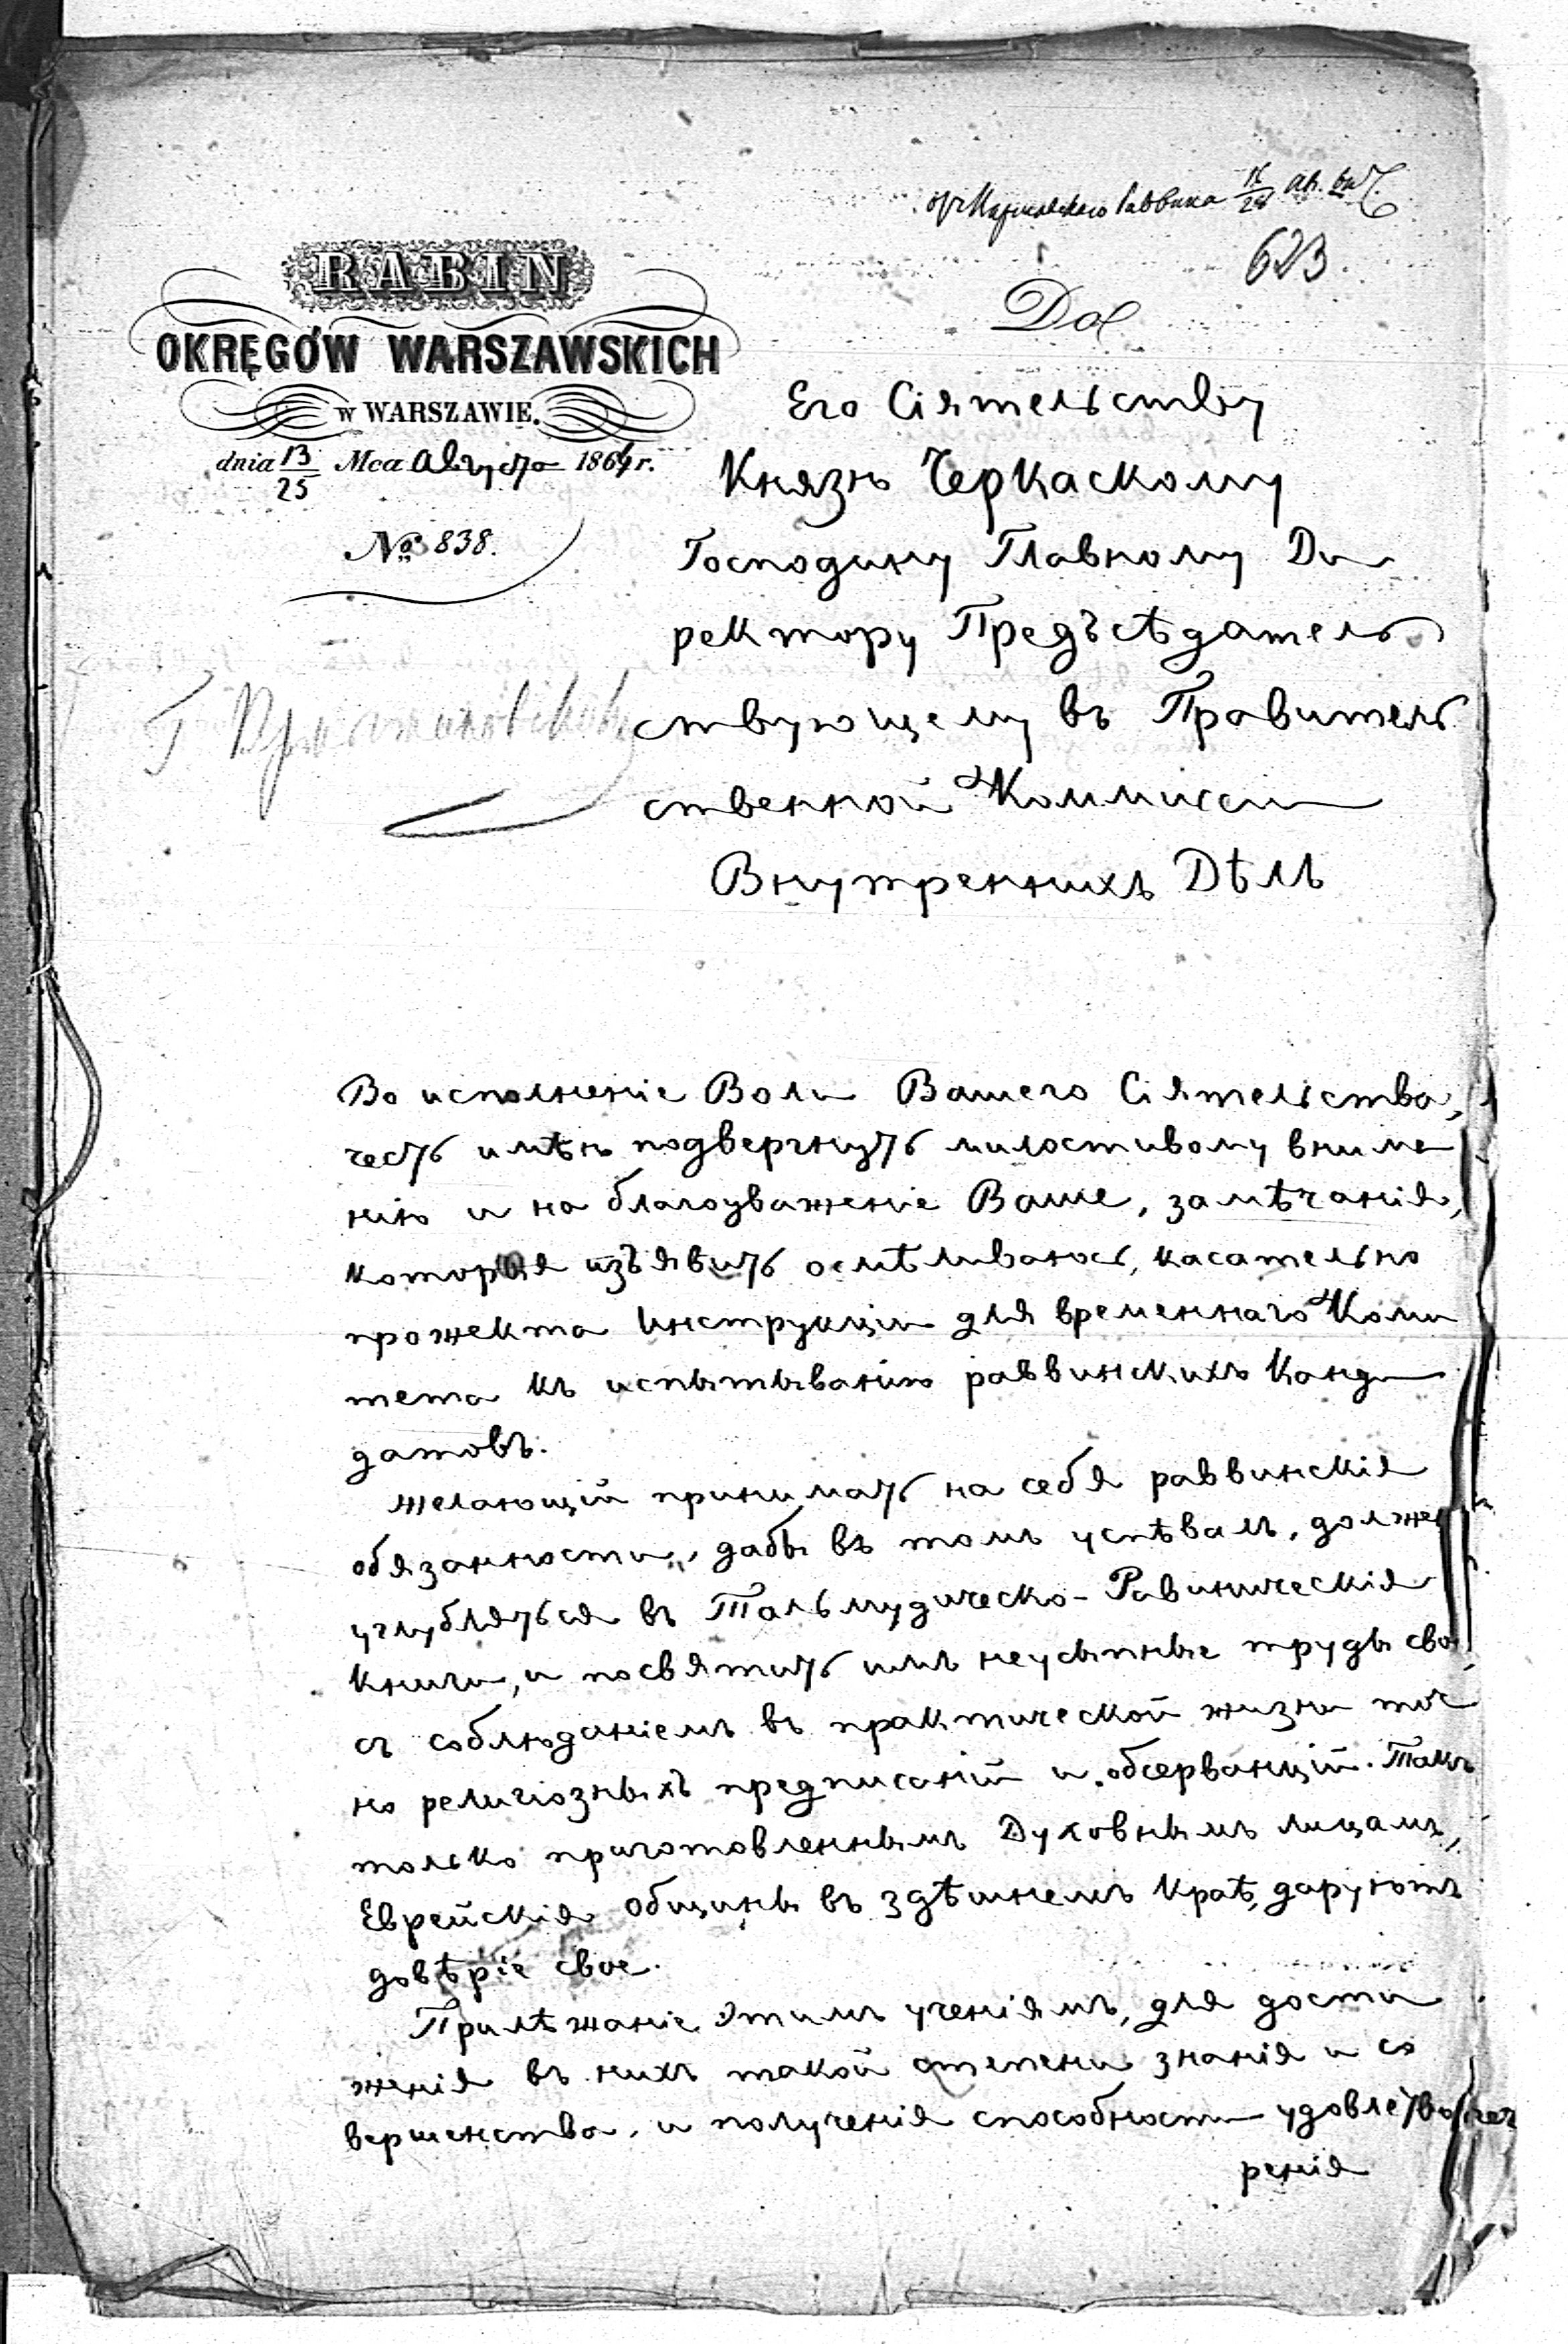 Раввина 16/28 Ав.
623.
RABIN
OKRĘGÓW WARSZAWSKICH
w WARSZAWIE.
dnia 13/25 Mca Августа 1864 r.
№ 838.
Do
Его Сіятельству
Князю Черкаскому
Господину Главному Ди
ректору Предъсѣдатель
ствующему въ Правитель
ственной Коммиссіи
Внутреннихъ Дѣлъ
Во исполненіе Воли Вашего Сіятельства,
честь имѣю подвергнуть милостивому внима
нію и на благоуваженіе Ваше, замѣчанія,
которыя изъявить осмѣливаюсь, касательно
прожекта Инструкціи для временнаго Коми
тета къ испытыванію раввинскихъ Канди
датовъ.
Желающій принимать на себя раввинскія
обязанности, дабы въ томъ успѣвалъ, долженъ
углубляться въ Тальмудическо-Равиническія
Книги, и посвятить имъ неусыпные труды свои
съ соблюданіемъ въ практической жизни точ
но религіозныхъ предписаній и обсерванцій. Такъ
только приготовленнымъ Духовнымъ лицамъ,
Еврейскія Общины въ здѣшнемъ Краѣ, даруютъ
довѣріе свое.
Прилѣжаніе этимъ ученіямъ, для дости
женія въ нихъ такой степени знанія и со
вершенства, и полученія способности удовлетво
ренія